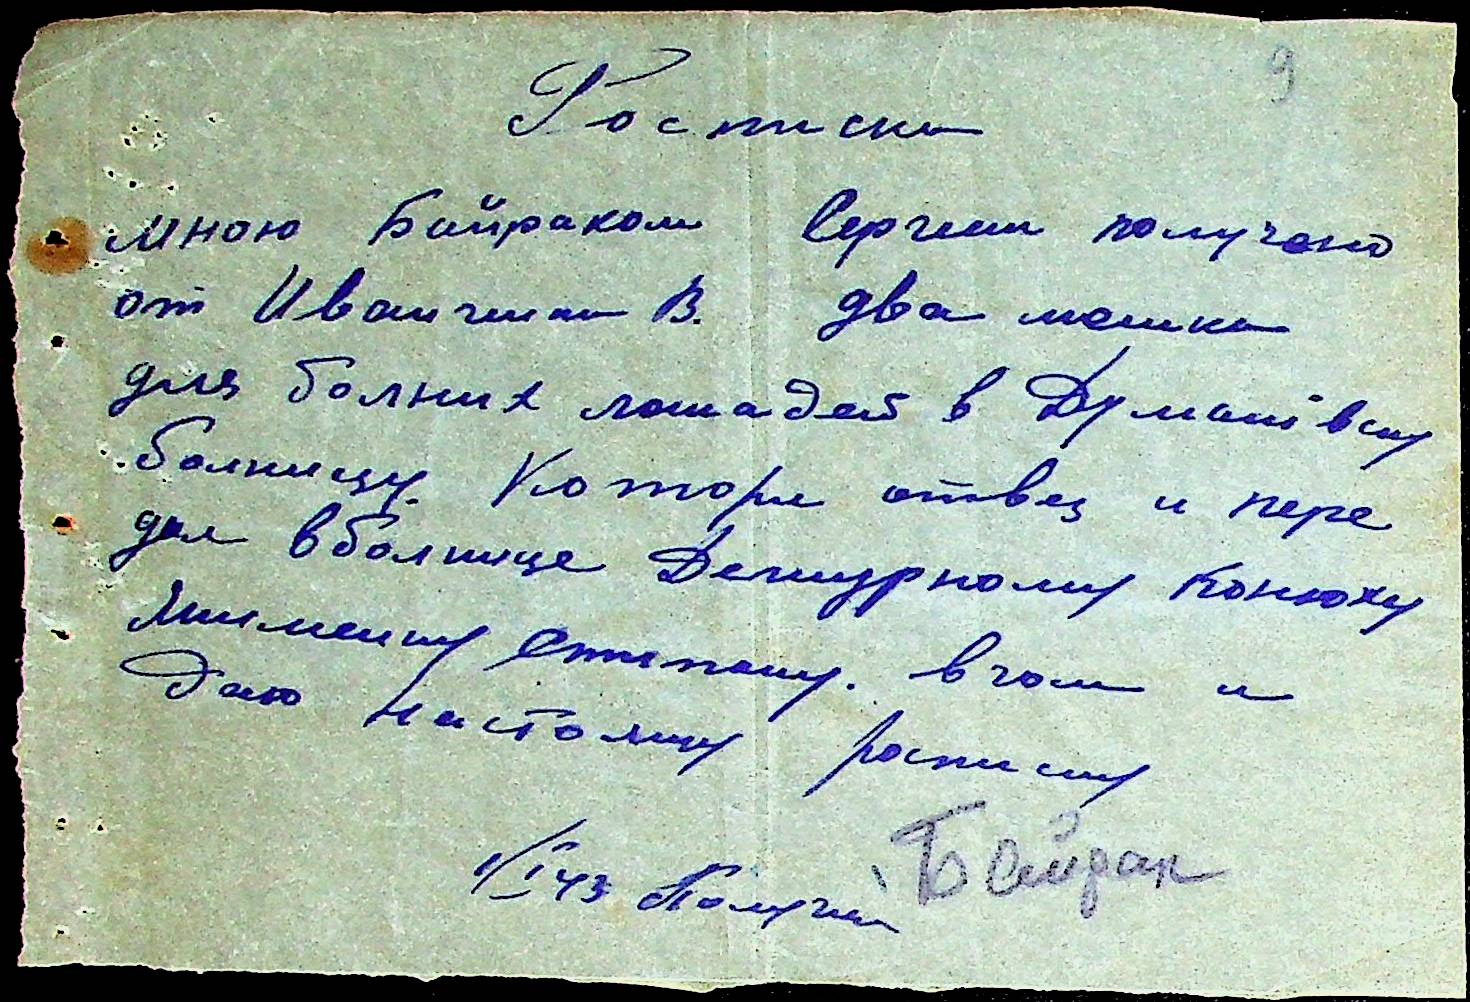 9
Росписка
мною Байраком Сергеем получено
от Иванчина В. два мешка
для болних лошадей в Думанівску
болницу. Которы отвез и пере
дал в болнице Дежурному Конюху
Степану. в чом и
даю настоящу росписку
1/I 43 Получил Байрак